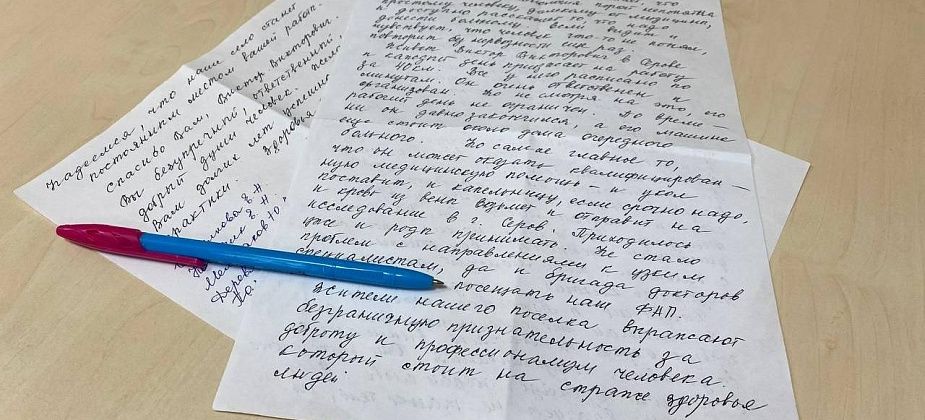 простому человеку, далёкому от медицины,
и доступно рассказать то, что надо
донести больному, а если видит и
чувствует, что человек что-то не понял,
повторит без нервозности ещё раз.
Живёт Виктор Викторович в Серове
и каждый день приезжает на работу
за 40 км. Всё у него расписано по
минутам. Он очень ответственен и
организован. Но не смотря на это, его
рабочий день не ограничен. Во время –
ни он давно закончился, а его машина
ещё стоит около дома очередного
больного. Но самое главное то,
что он может оказать квалифицирован –
ную медицинскую помощь – и укол
поставит, и капельницу, если срочно надо,
и кровь из вены возьмёт и отправит на
исследование в г. Серов. Приходилось
уже и роды принимать. Не стало
проблем с направлениями к узким
специалистам, да и бригада докторов
посещать наш ФАП.
Жители нашего поселка выражают
безграничную признательность за
доброту и профессионализм человека
который стоит на страже здоровья
людей
Надеемся, что наше село станет
постоянным местом вашей работ.
Спасибо Вам, Виктор Викторович.
Вы безупречно ответственный
добрый души человек.
Вам долгих лет
здоровья
успешно
практики.